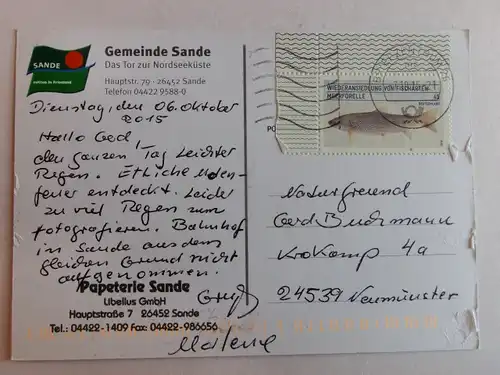 SANDE
Gemeinde Sande
Das Tor zur Nordseeküste
Hauptstr. 79 · 26452 Sande
Telefon 04422 9588-0
Dienstag, den 06. Oktober
2015
Hallo Gerd,
den ganzen Tag leichter
Regen. Etliche
feuer entdeckt. Leider
zu viel Regen zum
fotografieren. Bahnhof
in Sande aus dem
gleichen Grund nicht
aufgenommen.
Papeterie Sande
Libellus GmbH
Hauptstraße 7 26452 Sande
Tel.: 04422-1409 Fax: 04422-986656
Gruß
Marlene
WIEDERANSIEDLUNG VON FISCHARTEN
MEERFORELLE
45
Naturfreund
Gerd Buchmann
Krokamp 4a
24539 Neumünster